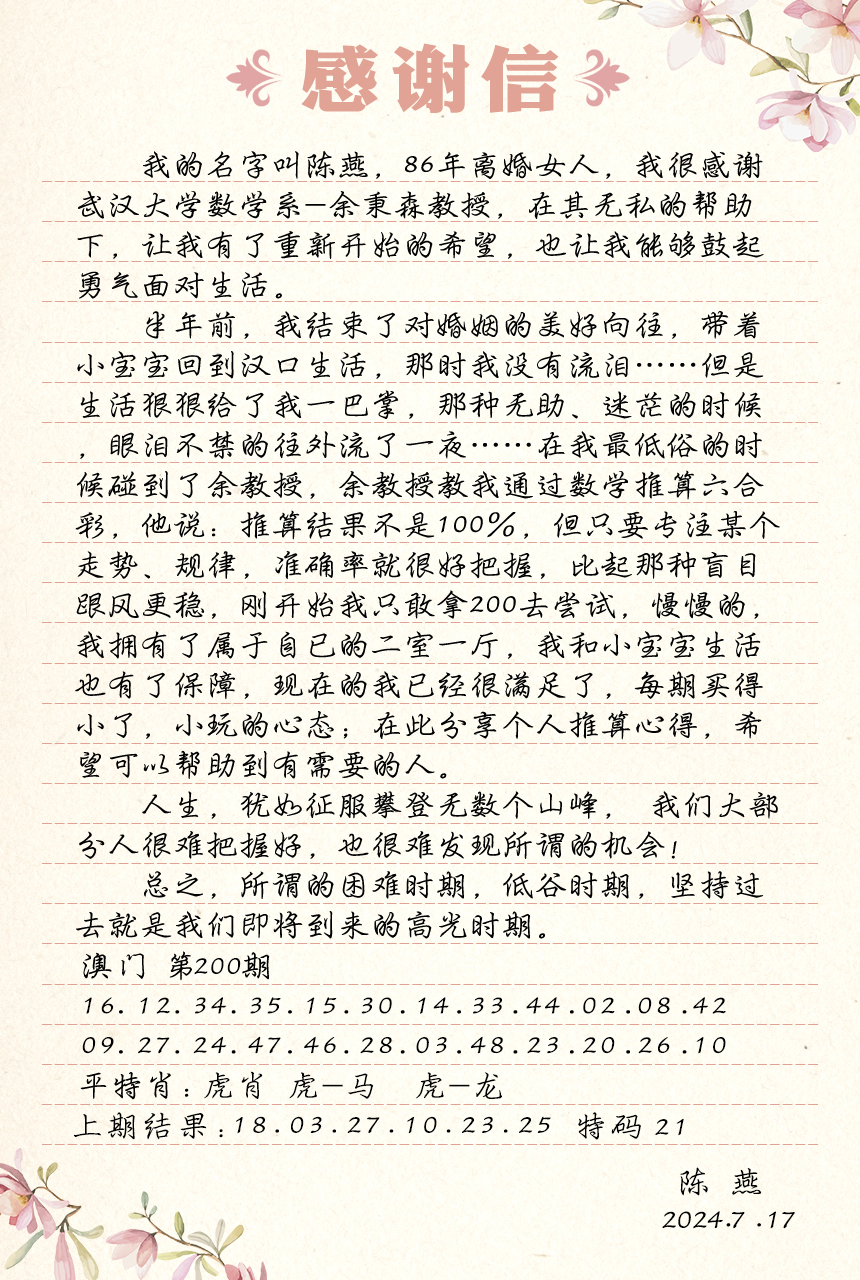 感谢信
我的名字叫陈燕，86年离婚女人，我很感谢
武汉大学数学系—余秉森教授，在其无私的帮助
下，让我有了重新开始的希望，也让我能够鼓起
勇气面对生活。
半年前，我结束了对婚姻的美好向往，带着
小宝宝回到汉口生活，那时我没有流泪……但是
生活狠狠给了我一巴掌，那种无助、迷茫的时候
，眼泪不禁的往外流了一夜……在我最低俗的时
候碰到了余教授，余教授教我通过数学推算六合
彩，他说：推算结果不是100%，但只要专注某个
走势、规律，准确率就很好把握，比起那种盲目
跟风更稳，刚开始我只敢拿200去尝试，慢慢的，
我拥有了属于自已的二室一厅，我和小宝宝生活
也有了保障，现在的我已经很满足了，每期买得
小了，小玩的心态；在此分享个人推算心得，希
望可以帮助到有需要的人。
人生，犹如征服攀登无数个山峰， 我们大部
分人很难把握好，也很难发现所谓的机会！
总之，所谓的困难时期，低谷时期，坚持过
去就是我们即将到来的高光时期。
澳门 第200期
16.12.34.35.15.30.14.33.44.02.08.42
09.27.24.47.46.28.03.48.23.20.26.10
平特肖：虎肖 虎—马 虎—龙
上期结果：18.03.27.10.23.25 特码 21
陈 燕
2024.7.17